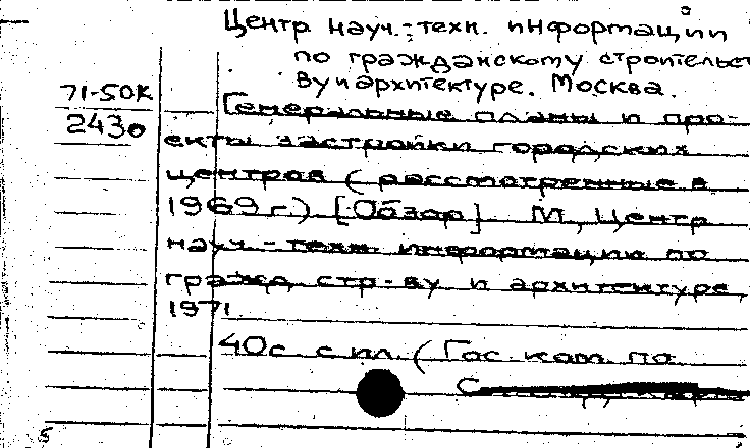 Центр науч.-техн. информации
по гражданскому строительст
ву и архитектуре. Москва.
71-50К
2430
Генеральные планы и про-
екты застройки городских
центров (рассмотренные в
1969 г.) [Обзор]. М, Центр
науч.-техн. информации по
гражд. стр-ву и архитектуре,
1971.
40с. с ил. (Гос. ком. по